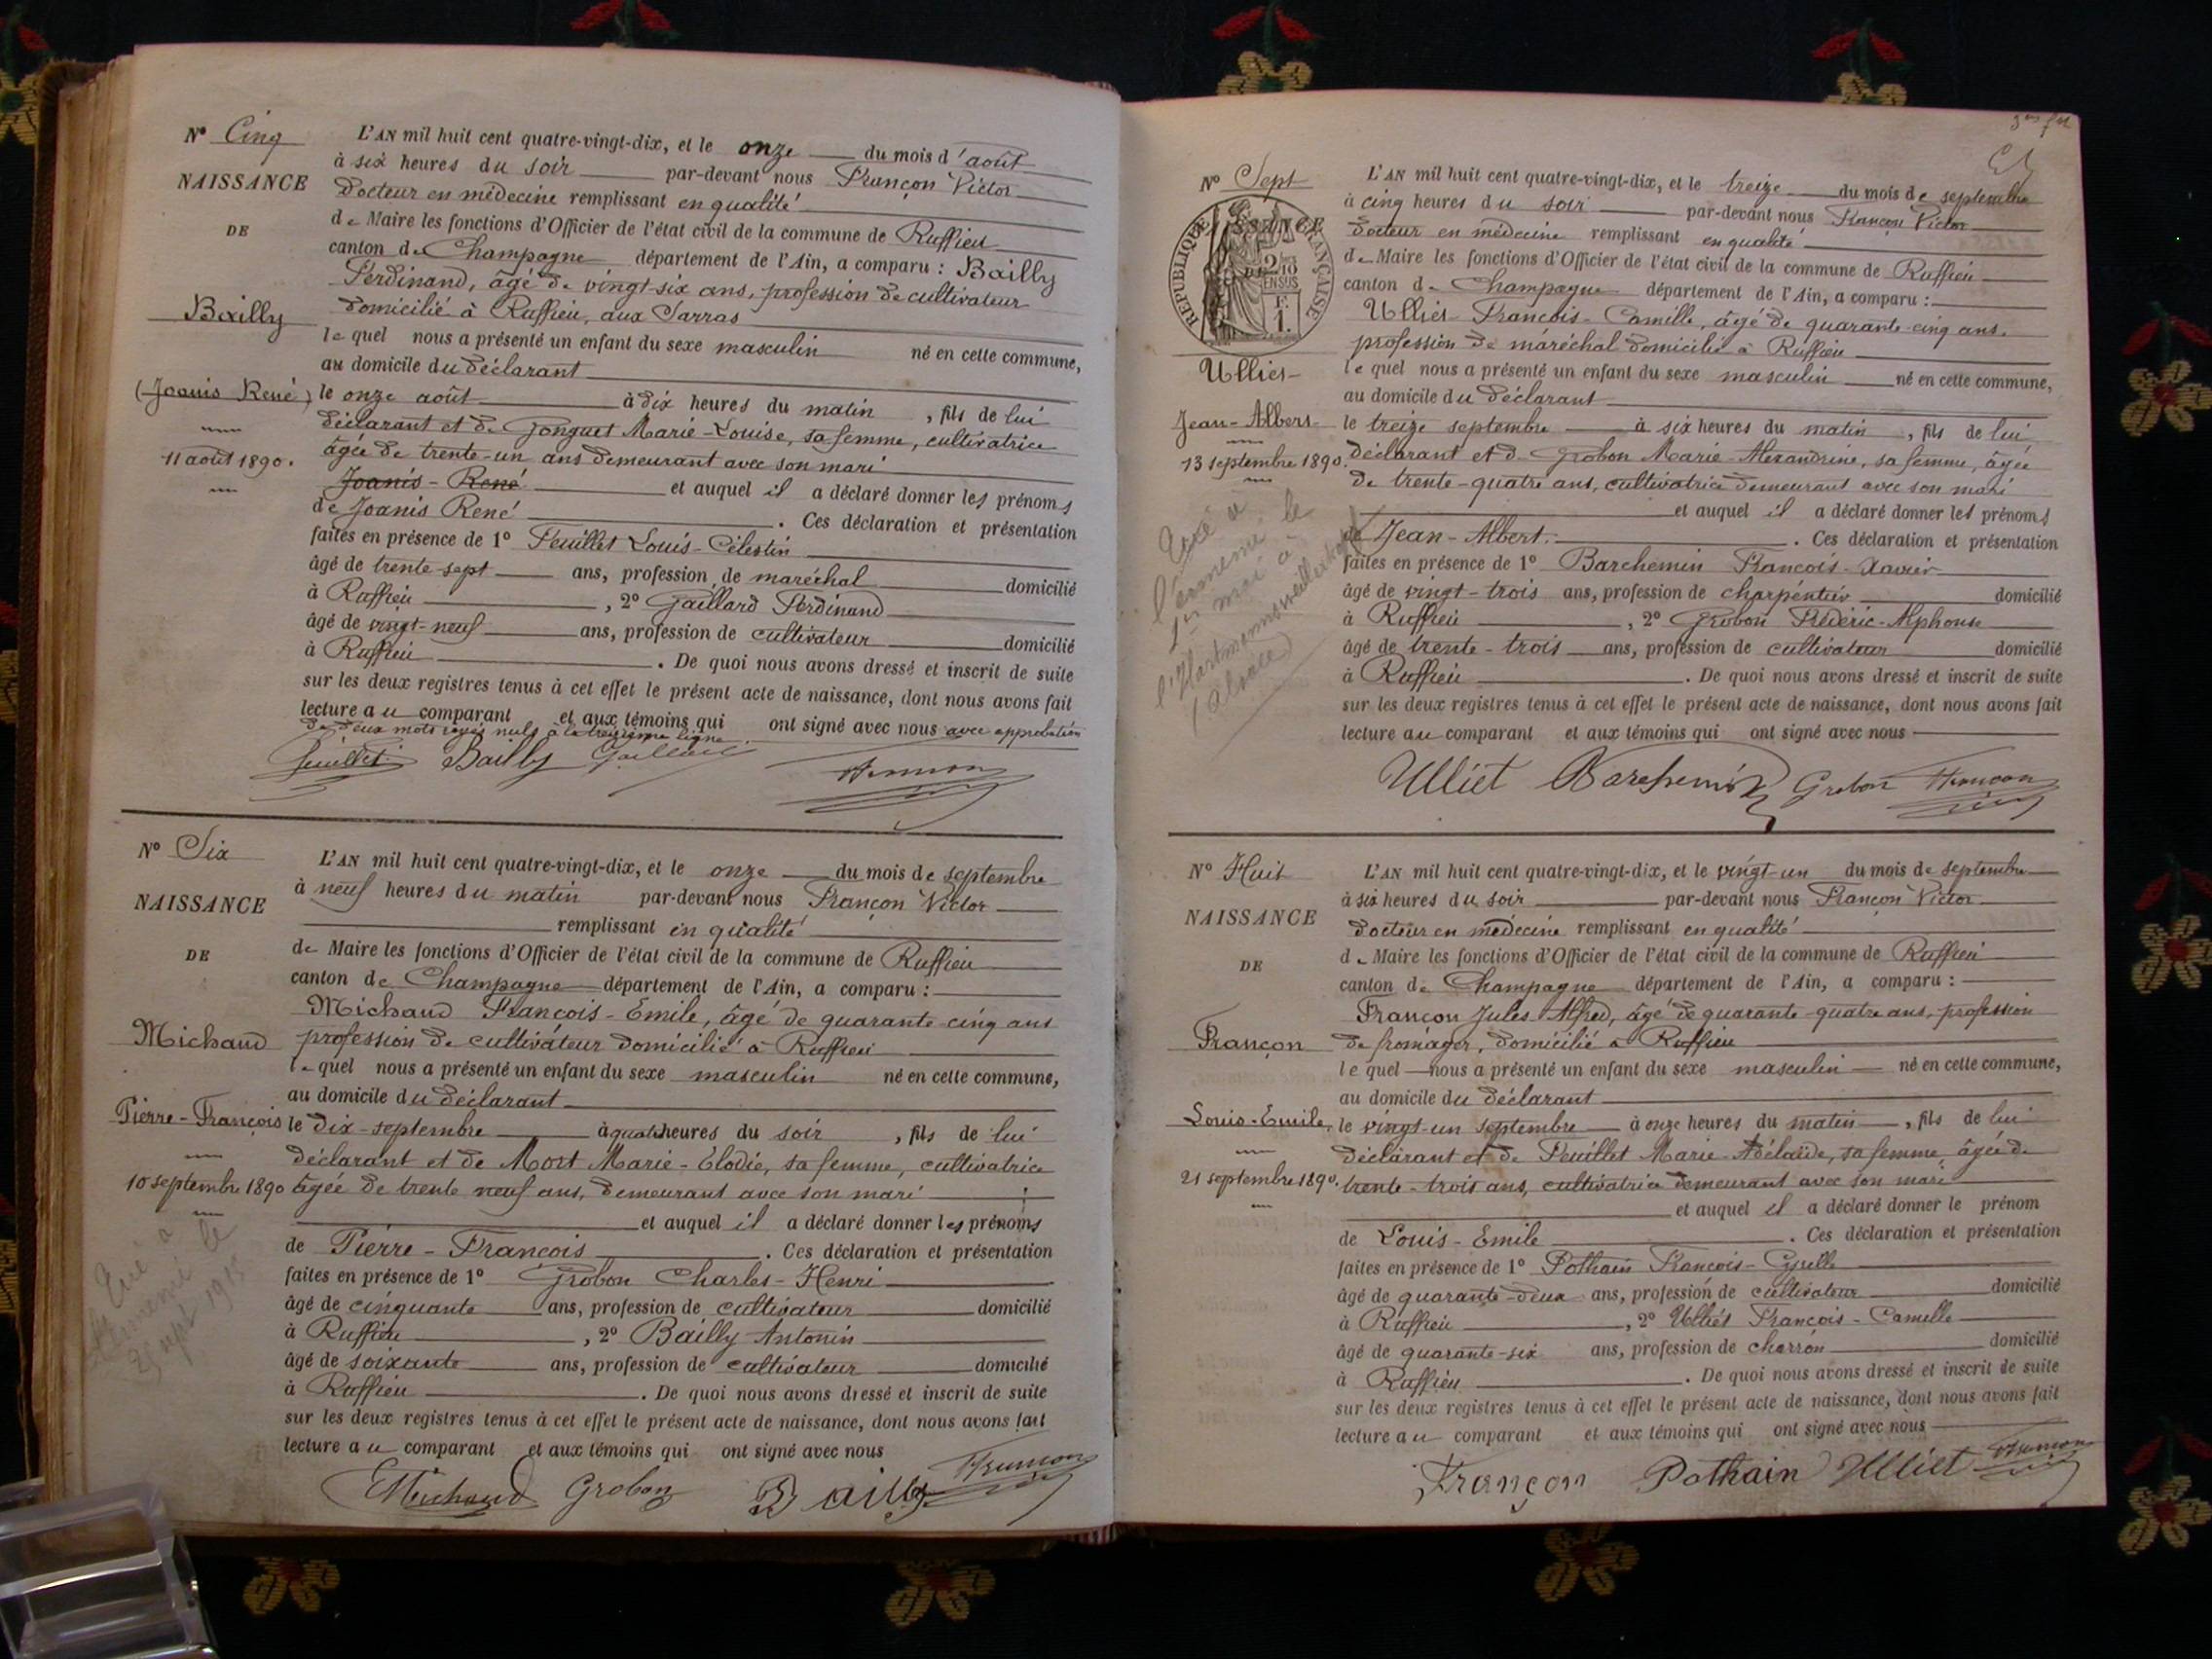 N° Cinq
NAISSANCE
DE
Bailly
(Joanis René)
11 août 1890.
L'AN mil huit cent quatre-vingt-dix, et le onze du mois d'août
à six heures du soir par-devant nous Françon Victor
docteur en médecine remplissant en qualité
de Maire les fonctions d'Officier de l'état civil de la commune de Ruffieu
canton de Champagne département de l'Ain, a comparu : Bailly
Ferdinand, âgé de vingt-six ans, profession de cultivateur
domicilié à Ruffieu, aux Sarras
lequel nous a présenté un enfant du sexe masculin né en cette commune,
au domicile du déclarant
le onze août à dix heures du matin, fils de lui
déclarant et de Gonguet Marie-Louise, sa femme, cultivatrice
âgée de trente-un ans demeurant avec son mari
Joanis-René et auquel il a déclaré donner les prénoms
de Joanis René. Ces déclaration et présentation
faites en présence de 1° Feuillet Louis-Célestin
âgé de trente-sept ans, profession de maréchal domicilié
à Ruffieu, 2° Gaillard Ferdinand
âgé de vingt-neuf ans, profession de cultivateur domicilié
à Ruffieu. De quoi nous avons dressé et inscrit de suite
sur les deux registres tenus à cet effet le présent acte de naissance, dont nous avons fait
lecture au comparant et aux témoins qui ont signé avec nous avec approbation
de deux mots rayés nuls à la treizième ligne
Feuillet Bailly Gaillard Françon
N° Six
NAISSANCE
DE
Michaud
Pierre-François
10 septembre 1890
Tué à l'ennemi le
25 sept 1915
L'AN mil huit cent quatre-vingt-dix, et le onze du mois de septembre
à neuf heures du matin par-devant nous Françon Victor
remplissant en qualité
de Maire les fonctions d'Officier de l'état civil de la commune de Ruffieu
canton de Champagne département de l'Ain, a comparu :
Michaud François-Emile, âgé de quarante-cinq ans
profession de cultivateur domicilié à Ruffieu
lequel nous a présenté un enfant du sexe masculin né en cette commune,
au domicile du déclarant
le dix-septembre à quatre heures du soir, fils de lui
déclarant et de Mort Marie-Elodie, sa femme, cultivatrice
âgée de trente neuf ans, demeurant avec son mari
et auquel il a déclaré donner les prénoms
de Pierre-François. Ces déclaration et présentation
faites en présence de 1° Grobon Charles-Henri
âgé de cinquante ans, profession de cultivateur domicilié
à Ruffieu, 2° Bailly Antonin
âgé de soixante ans, profession de cultivateur domicilié
à Ruffieu. De quoi nous avons dressé et inscrit de suite
sur les deux registres tenus à cet effet le présent acte de naissance, dont nous avons fait
lecture au comparant et aux témoins qui ont signé avec nous
EMichaud Grobon Bailly Françon
N° Sept
NAISSANCE
RÉPUBLIQUE FRANÇAISE
2/10
EN SUS
F.
1.
Ulliet
Jean-Albert
13 septembre 1890.
Tué à
l'ennemi le
1er mai à
l'Hartmannsweillerkopf
(Alsace)
L'AN mil huit cent quatre-vingt-dix, et le treize du mois de septembre
à cinq heures du soir par-devant nous Françon Victor
docteur en médecine remplissant en qualité
de Maire les fonctions d'Officier de l'état civil de la commune de Ruffieu
canton de Champagne département de l'Ain, a comparu :
Ulliet François-Camille, âgé de quarante-cinq ans.
profession de maréchal domicilié à Ruffieu
lequel nous a présenté un enfant du sexe masculin né en cette commune,
au domicile du déclarant
le treize septembre à six heures du matin, fils de lui
déclarant et d. Grobon Marie-Alexandrine, sa femme, âgée
de trente-quatre ans, cultivatrice demeurant avec son mari
et auquel il a déclaré donner les prénoms
de Jean-Albert. Ces déclaration et présentation
faites en présence de 1° Barchemin François-Xavier
âgé de vingt-trois ans, profession de charpentier domicilié
à Ruffieu, 2° Grobon Frédéric-Alphonse
âgé de trente-trois ans, profession de cultivateur domicilié
à Ruffieu. De quoi nous avons dressé et inscrit de suite
sur les deux registres tenus à cet effet le présent acte de naissance, dont nous avons fait
lecture au comparant et aux témoins qui ont signé avec nous
Ulliet Barchemin Grobon Françon
N° Huit
NAISSANCE
DE
Françon
Louis-Emile,
21 septembre 1890.
L'AN mil huit cent quatre-vingt-dix, et le vingt-un du mois de septembre
à six heures du soir par-devant nous Françon Victor
docteur en médecine remplissant en qualité
de Maire les fonctions d'Officier de l'état civil de la commune de Ruffieu
canton de Champagne département de l'Ain, a comparu :
Françon Jules-Alfred, âgé de quarante-quatre ans, profession
de fromager, domicilié à Ruffieu
lequel nous a présenté un enfant du sexe masculin né en cette commune,
au domicile du déclarant
le vingt-un septembre à onze heures du matin, fils de lui
déclarant et de Feuillet Marie-Adélaïde, sa femme, âgée de
trente-trois ans, cultivatrice demeurant avec son mari
et auquel il a déclaré donner le prénom
de Louis-Emile. Ces déclaration et présentation
faites en présence de 1° Pothain François-Cyrille
âgé de quarante-deux ans, profession de cultivateur domicilié
à Ruffieu, 2° Ulliet François-Camille
âgé de quarante-six ans, profession de charron domicilié
à Ruffieu. De quoi nous avons dressé et inscrit de suite
sur les deux registres tenus à cet effet le présent acte de naissance, dont nous avons fait
lecture au comparant et aux témoins qui ont signé avec nous
Françon Pothain Ulliet Françon